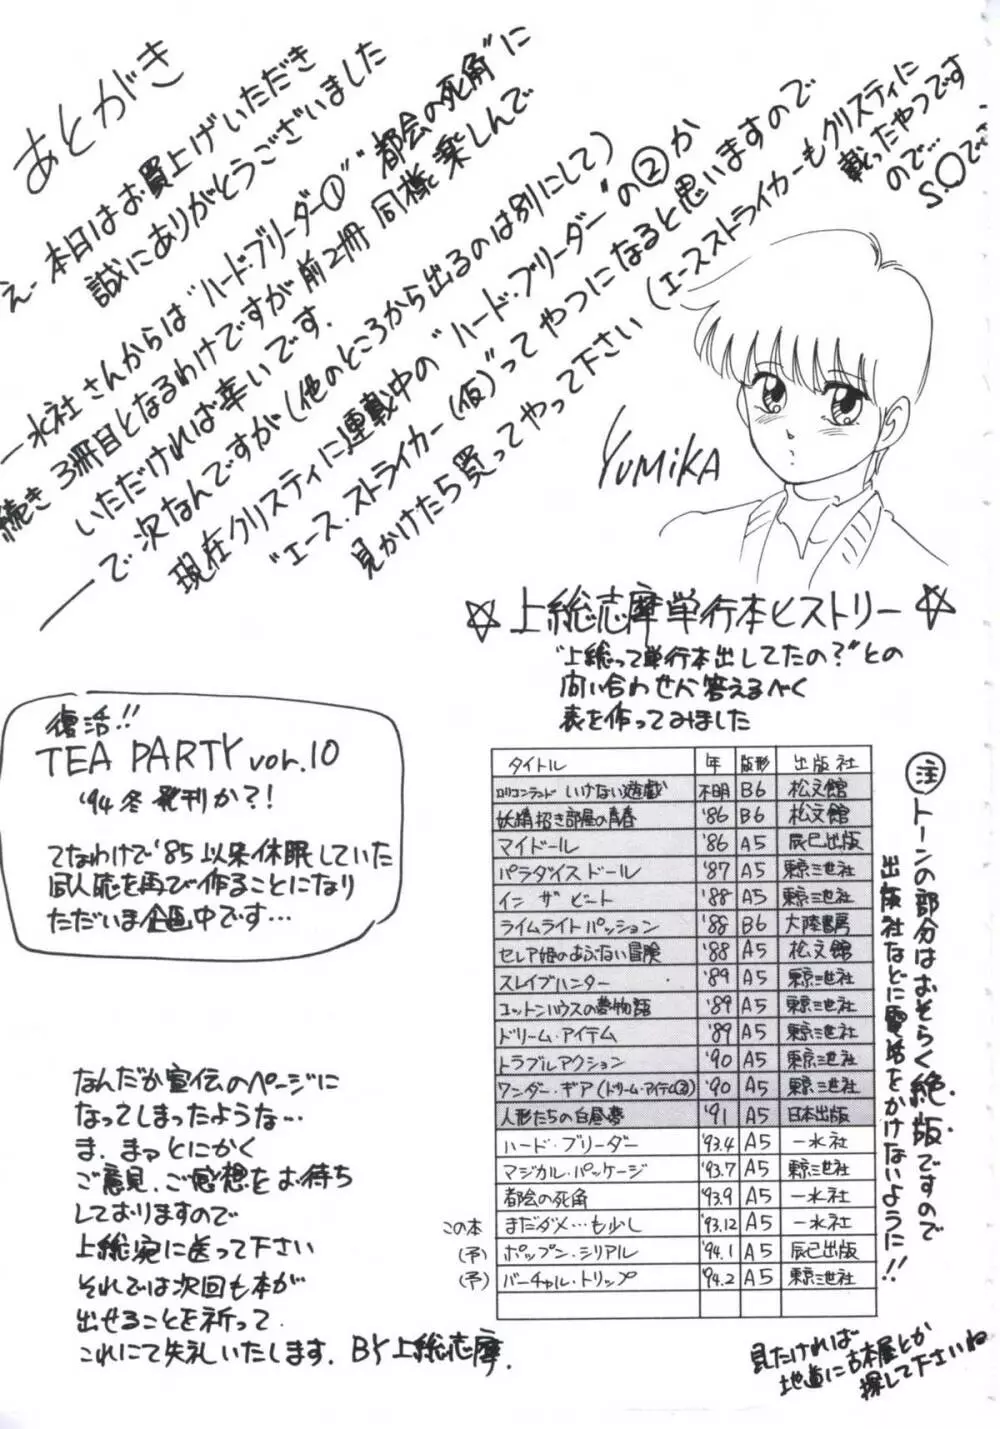 あとがき
え、本日はお買上げいただき
誠にありがとうございました
一水社さんからは"ハード・ブリーダー①""都会の死角"に
続き3冊目となるわけですが前2冊同様楽しんで
いただければ幸いです.
で次なんですが(他のところから出るのは別にして)
現在クリスティに連載中の"ハード・ブリーダー"の②か
"エース.ストライカー(仮)"ってやつになると思いますので
見かけたら買ってやって下さい(エースストライカーもクリスティに
載ったやつです
ので…
S.O
YUMIKA
☆上総志摩単行本ヒストリー☆
"上総って単行本出してたの?"との
問い合わせに答えるべく
表を作ってみました
復活!!
TEA PARTY vol.10
'94冬発刊か?!
てなわけで'85以来休眠していた
同人誌を再び作ることになり
ただいま企画中です…
タイトル 年 版形 出版社
ロリコンランド いけない遊戯 不明 B6 松文館
妖精招き部屋の青春 '86 B6 松文館
マイドール '86 A5 辰巳出版
パラダイスドール '87 A5 東京三世社
イン ザ ビート '88 A5 東京三世社
ライムライトパッション '88 B6 大陸書房
セレア姫のあぶない冒険 '88 A5 松文館
スレイブハンター '89 A5 東京三世社
コットンハウスの夢物語 '89 A5 東京三世社
ドリーム・アイテム '89 A5 東京三世社
トラブルアクション '90 A5 東京三世社
ワンダー・ギア(ドリーム・アイテム②) '90 A5 東京三世社
人形たちの白昼夢 '91 A5 日本出版
ハード・ブリーダー '93.4 A5 一水社
マジカル・パッケージ '93.7 A5 東京三世社
都会の死角 '93.9 A5 一水社
この本 まだダメ…も少し '93.12 A5 一水社
(予) ポップン・シリアル '94.1 A5 辰巳出版
(予) バーチャル・トリップ '94.2 A5 東京三世社
注 トーンの部分はおそらく絶版ですので
出版社などに電話をかけないように!!
見たければ
地道に古本屋とか
探して下さいね
なんだか宣伝のページに
なってしまったような…
ま、まっとにかく
ご意見、ご感想をお待ち
しておりますので
上総宛に送って下さい
それでは次回も本が
出せることを祈って.
これにて失礼いたします. BY上総志摩.